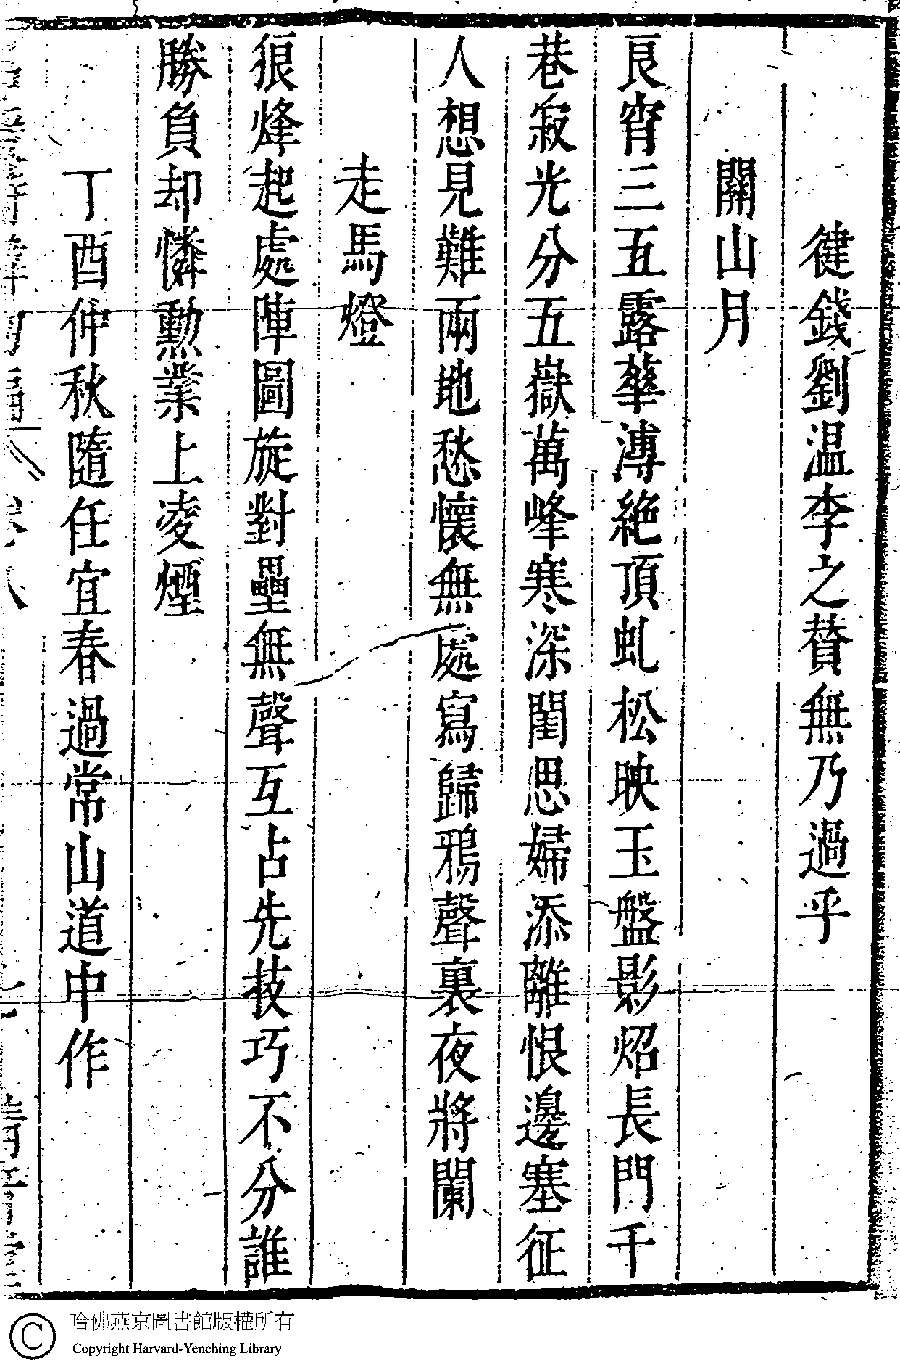 健錢劉温李之賛無乃過乎
關山月
良宵三五露華漙絶頂虬松映玉盤影炤長門千
巷寂光分五嶽萬峰寒深閨思婦添離恨邊塞征
人想見難兩地愁懷無處寫歸鴉聲裏夜將闌
走馬燈
狼烽起處陣圖旋對壘無聲互占先技巧不分誰
勝負却憐勳業上凌煙
丁酉仲秋隨任宜春過常山道中作
哈佛燕京圖書館版權所有
Copyright Harvard-Yenching Library